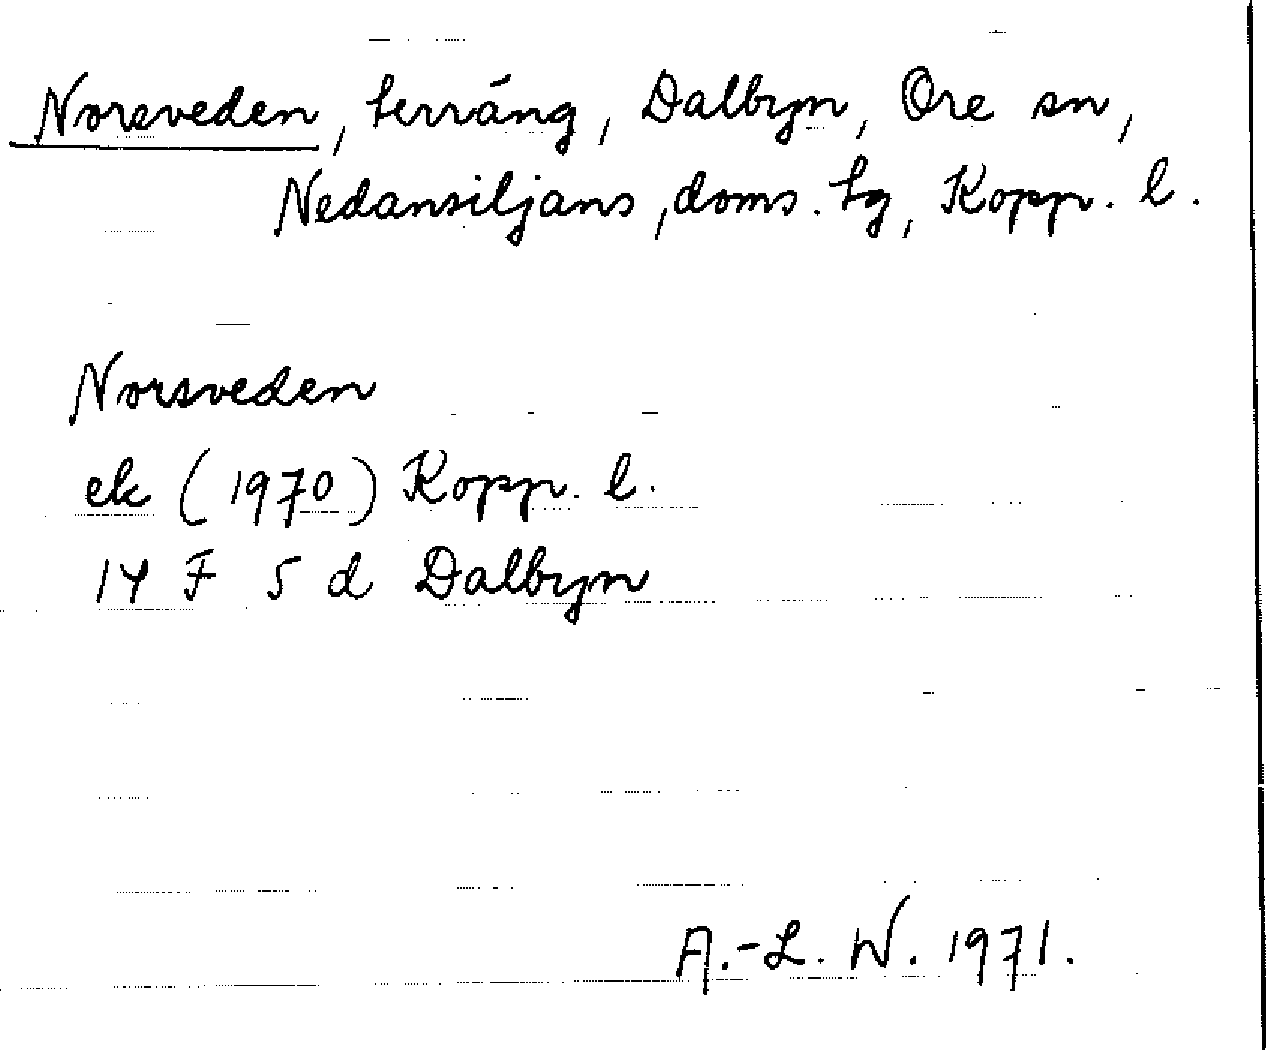 Norsveden, terräng, Dalbyn, Ore sn,
Nedansiljans, doms. tg, Kopp. l.
Norsveden
ek (1970) Kopp. l.
14 F 5 d Dalbyn
A.-L. W. 1971.